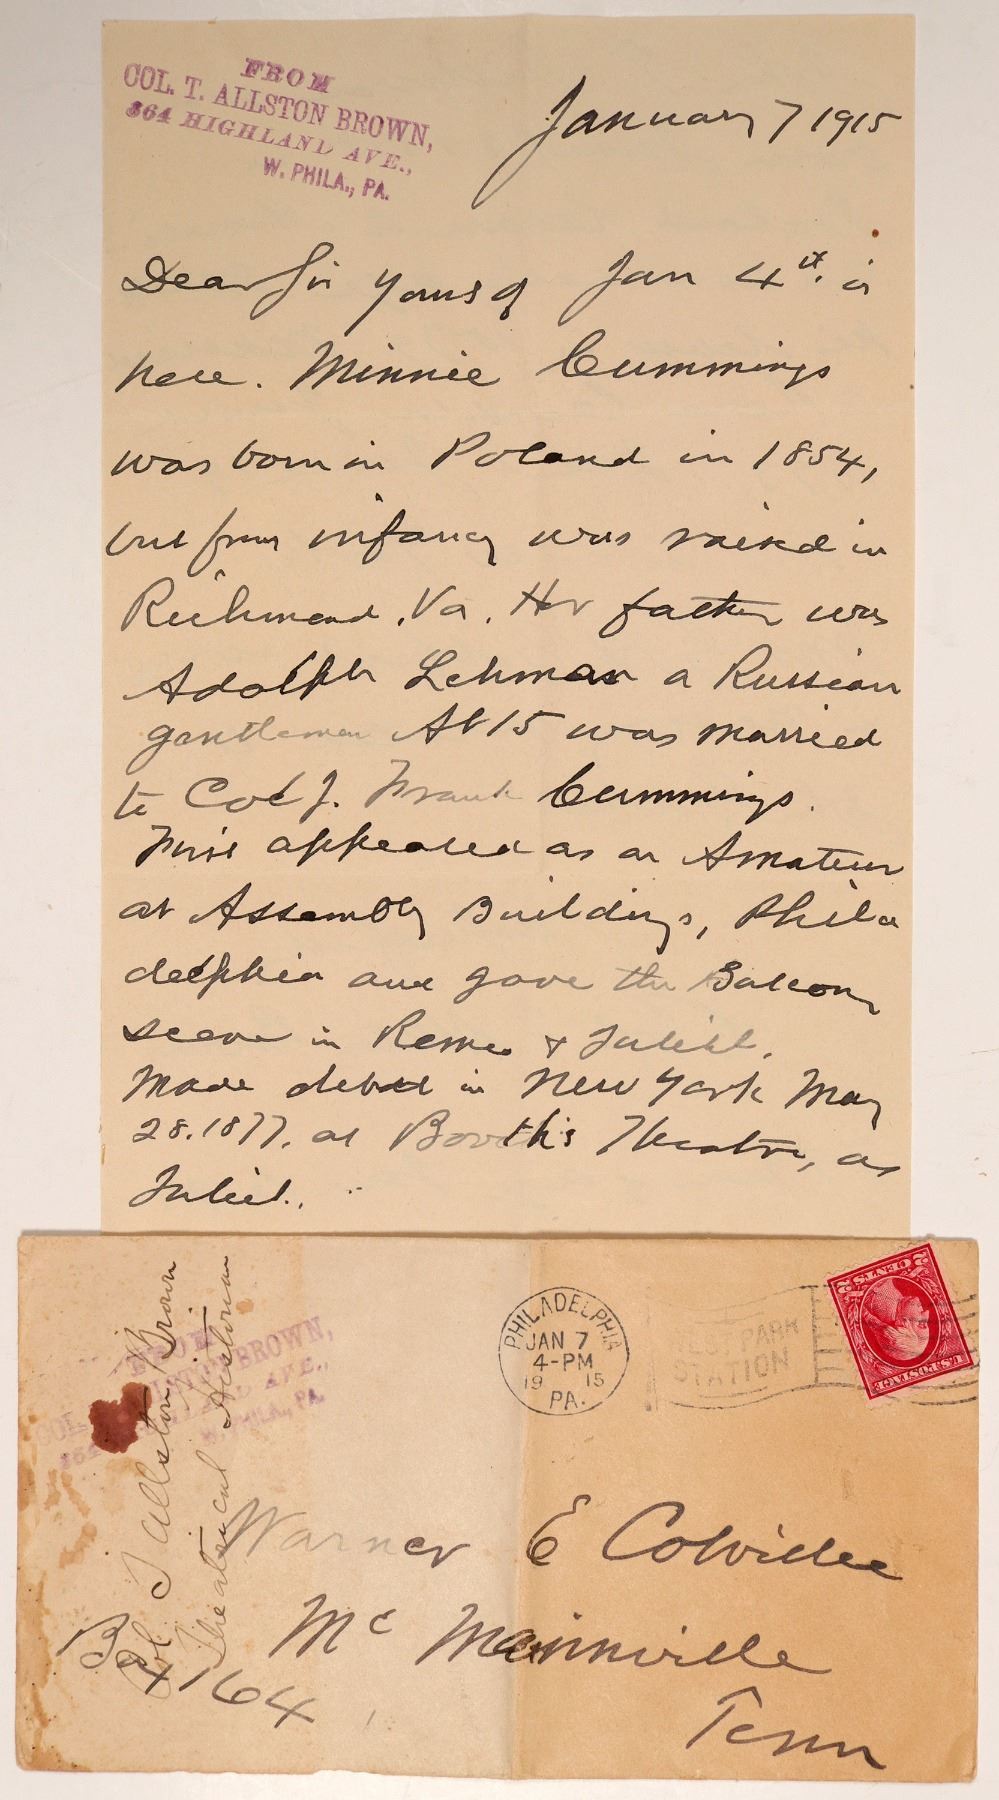 FROM
COL. T. ALLSTON BROWN,
364 HIGHLAND AVE.,
W. PHILA., PA.
January 7 1915
Dear Sir Yours of Jan 4th. is
here. Minnie Cummings
was born in Poland in 1854,
but from infancy was raised in
Richmond, Va. Her father was
Adolph Lehman a Russian
gentleman At 15 was married
to Col J. Frank Cummings.
First appeared as an Amateur
at Assembly Buildings, Phila
delphia and gave the Balcony
scene in Romeo & Juliet.
Made debut in New York May
28.1877, at Booth's Theatre, as
Juliet.
PHILADELPHIA
JAN 7
4-PM
19 15
PA.
PARK
STATION
2 CENTS 2
U.S. POSTAGE
FROM
COL. T. ALLSTON BROWN,
364 HIGHLAND AVE.,
W. PHILA., PA.
Col T Allston Brown
Theatrical Historian
Warner E Colville
Mc Minnville
Box 164
Tenn